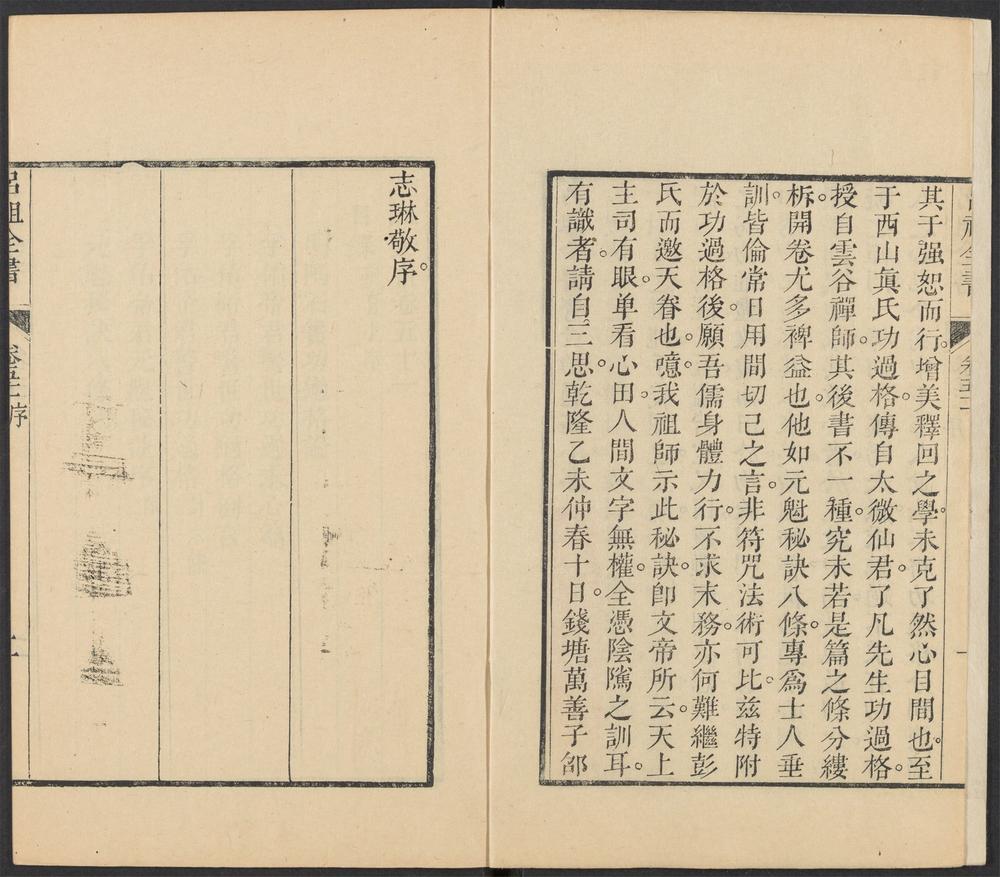 其于强恕而行。增美釋回之學。未克了然心目間也。至
于西山眞氏功過格。傳自太微仙君。了凡先生功過格。
授自雲谷禪師。其後書不一種。究未若是篇之條分縷
柝。開卷尤多裨益也。他如元魁秘訣八條。專爲士人垂
訓。皆倫常日用間切己之言。非符咒法術可比。兹特附
於功過格後。願吾儒身體力行。不求末務。亦何難繼彭
氏而邀天眷也。噫。我祖師示此秘訣。卽文帝所云。天上
主司有眼。单看心田。人間文字無權。全憑陰隲之訓耳。
有識者。請自三思。乾隆乙未仲春十日。錢塘萬善子邵
志琳敬序。
呂祖全書
卷五十二
一
呂祖全書
卷五十二序